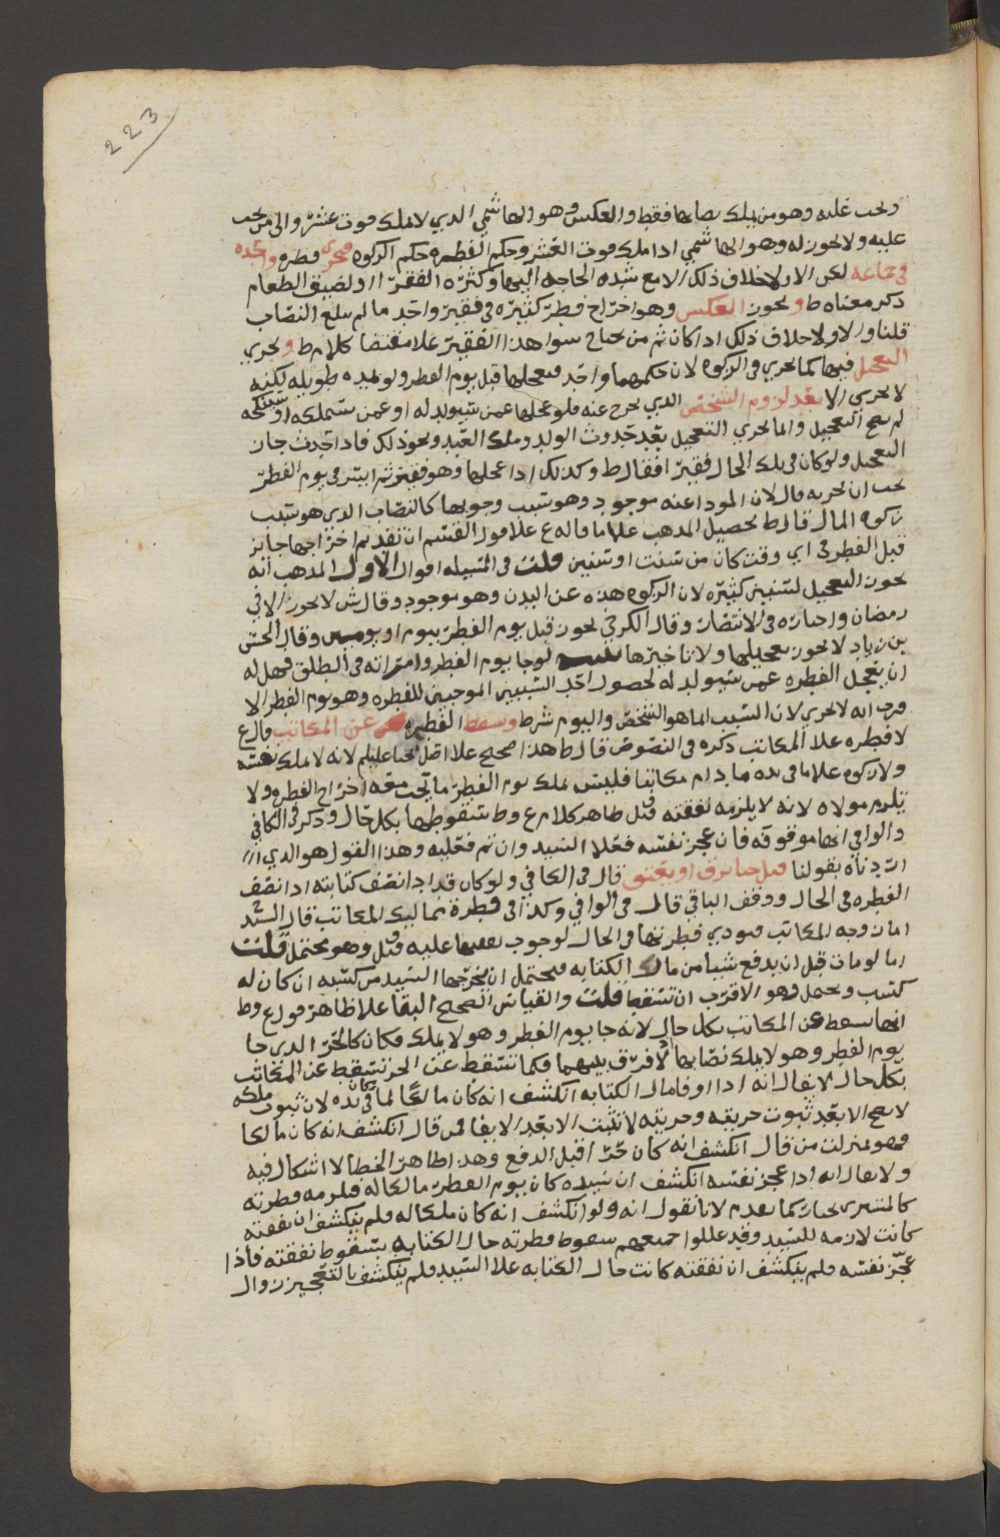 223
وتحب عليه وهو من يملك نصابها فقط والعكس وهو الهاشمي الذي لا يملك قوت عشر والى من تجب
عليه ولا تجوز له وهو الهاشمي اذا ملك قوت العشر وحكم الفطره حكم الزكوه فتجزي فطره واحده
في جماعه لكن الاولا خلاف ذلك الا مع شده الحاجه اليها وكثره الفقرا او لضيق الطعام
ذكر معناه ط وتجوز العكس وهو اخراج فطر كثيره في فقير واحد ما لم يبلغ النصاب
قلنا والاولا خلاف ذلك اذا كان ثم من يحتاج سوا هذا الفقير علا مقتضا كلام ط وتجزي
التعجيل فيها كما تجزي في الزكوه لان حكمهما واحد فيعجلها قبل يوم الفطر ولو بمده طويله لكنه
لا تجزي الا بعد لزوم الشخص الذي يخرج عنه فلو عجلها عمن سيولد له او عمن سيملكه او سينكحه
لم يصح التعجيل وانما تجزي التعجيل بعد حدوث الولد وملك العبد ونحو ذلك فاذا حدث جاز
التعجيل ولو كان في تلك الحال فقيرا فقال ط وكذلك اذا عجلها وهو فقير ثم ايسر في يوم الفطر
يجب ان تجزيه قال لان المودا عنه موجود وهو سبب وجوبها كالنصاب الذي هو سبب
زكوه المال قال ط تحصيل المذهب علا ما قاله ع علا قول القسم ان تقديم اخراجها جايز
قبل الفطر في اي وقت كان من سنت او سنتين قلت في المسيله اقوال الاول المذهب انه
يجوز التعجيل لسنين كثيره لان الزكوه هذه عن البدن وهو موجود وقال ش لا تجوز الا في
رمضان واختاره في الانتصار وقال الكرخي يجوز قبل يوم الفطر بيوم او يومين وقال الحسن
بن زياد لا تجوز تعجيلها ولا تاخيرها لو جا يوم الفطر وامراته في الطلق فهل له
ان يعجل الفطره عمن سيولد له لحصول احد السببين الموجبين للفطره وهو يوم الفطر الا
قرب انه لا تجزي لان السبب انما هو الشخص واليوم شرط وتسقط الفطره عن المكاتب قال ع
لا فطره علا المكاتب ذكره في النصوص قال ط هذا صحيح علا اصل يحيا عليلم لانه لا يملك نفسه
ولا زكوه علا ما في يده ما دام مكاتبا فليس يملك يوم الفطر ما يجب معه اخراج الفطره ولا
تلزم مولاه لانه لا يلزمه نفقته قيل ظاهر كلام ع وط سقوطها بكل حال وذكر في الكافي
والوافي انها موقوفه فان عجز نفسه فعلا السيد وان تم فعليه وهذا القول هو الذي ا
اردناه بقولنا قيل حتا يرق او يعتق قال في الكافي ولو كان قد ادا نصف كتابته ادا نصف
الفطره في الحال ووقف الباقي قال في الوافي وكذا في فطرة مماليك المكاتب قال السيد
اما زوجه المكاتب فيودي فطرتها في الحال لوجوب نفقتها عليه قيل وهو محتمل قلت
اما لو مات قبل ان يدفع شيا من مال الكتابه فيحتمل ان يخرجها السيد من كسبه ان كان له
كسب ويحتمل وهو الاقرب ان تسقط قلت والقياس الصحيح البقا علا ظاهر قول ع وط
انها تسقط عن المكاتب بكل حال لانه جا يوم الفطر وهو لا يملك فكان كالحر الذي جا
يوم الفطر وهو لا يملك نصابها لا فرق بينهما فكما تسقط عن الحر تسقط عن المكاتب
بكل حال لا يقال انه اذا اوفا مال الكتابه انكشف انه كان مالكا لما في يده لان ثبوت ملكه
لا يصح الا بعد ثبوت حريته وحريته لا تثبت الا بعد الايفا فمن قال انكشف انه كان مالكا
فهو بمنزلت من قال انكشف انه كان حرا قبل الدفع وهذا ظاهر الخطا لا اشكال فيه
ولا يقال انه اذا عجز نفسه انكشف ان سيده كان يوم الفطر مالكا له فلزمه فطرته
كالمشتري بخيار كما تقدم لانا نقول انه ولو انكشف انه كان مالكا له فلم ينكشف ان نفقته
كانت لازمه للسيد وقد عللوا جميعهم سقوط فطرته حال الكتابه بسقوط نفقته فاذا
عجز نفسه فلم ينكشف ان نفقته كانت حال الكتابه علا السيد فلم ينكشف بالتعجيز زوال